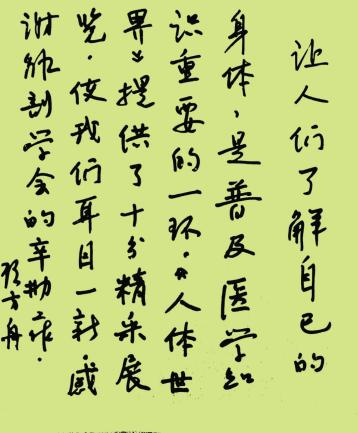 让人们了解自己的
身体,是普及医学知
识重要的一环。《人体世
界》提供了十分精采展
览。使我们耳目一新。感
谢解剖学会的辛勤工作。
顾方舟